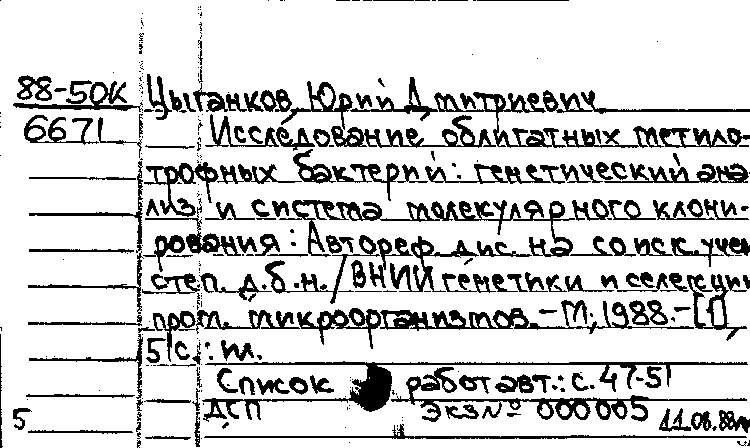 88-50К Цыганков, Юрий Дмитриевич.
6671 Исследование облигатных метило-
трофных бактерий: генетический ана-
лиз и система молекулярного клони-
рования: Автореф. дис. на соиск. учен.
степ. д.б.н./ВНИИ генетики и селекции
пром. микроорганизмов. - М., 1988. - [1],
51 с.: ил.
Список работ авт.: с. 47-51
ДСП Экз № 000005 11.08.88
5